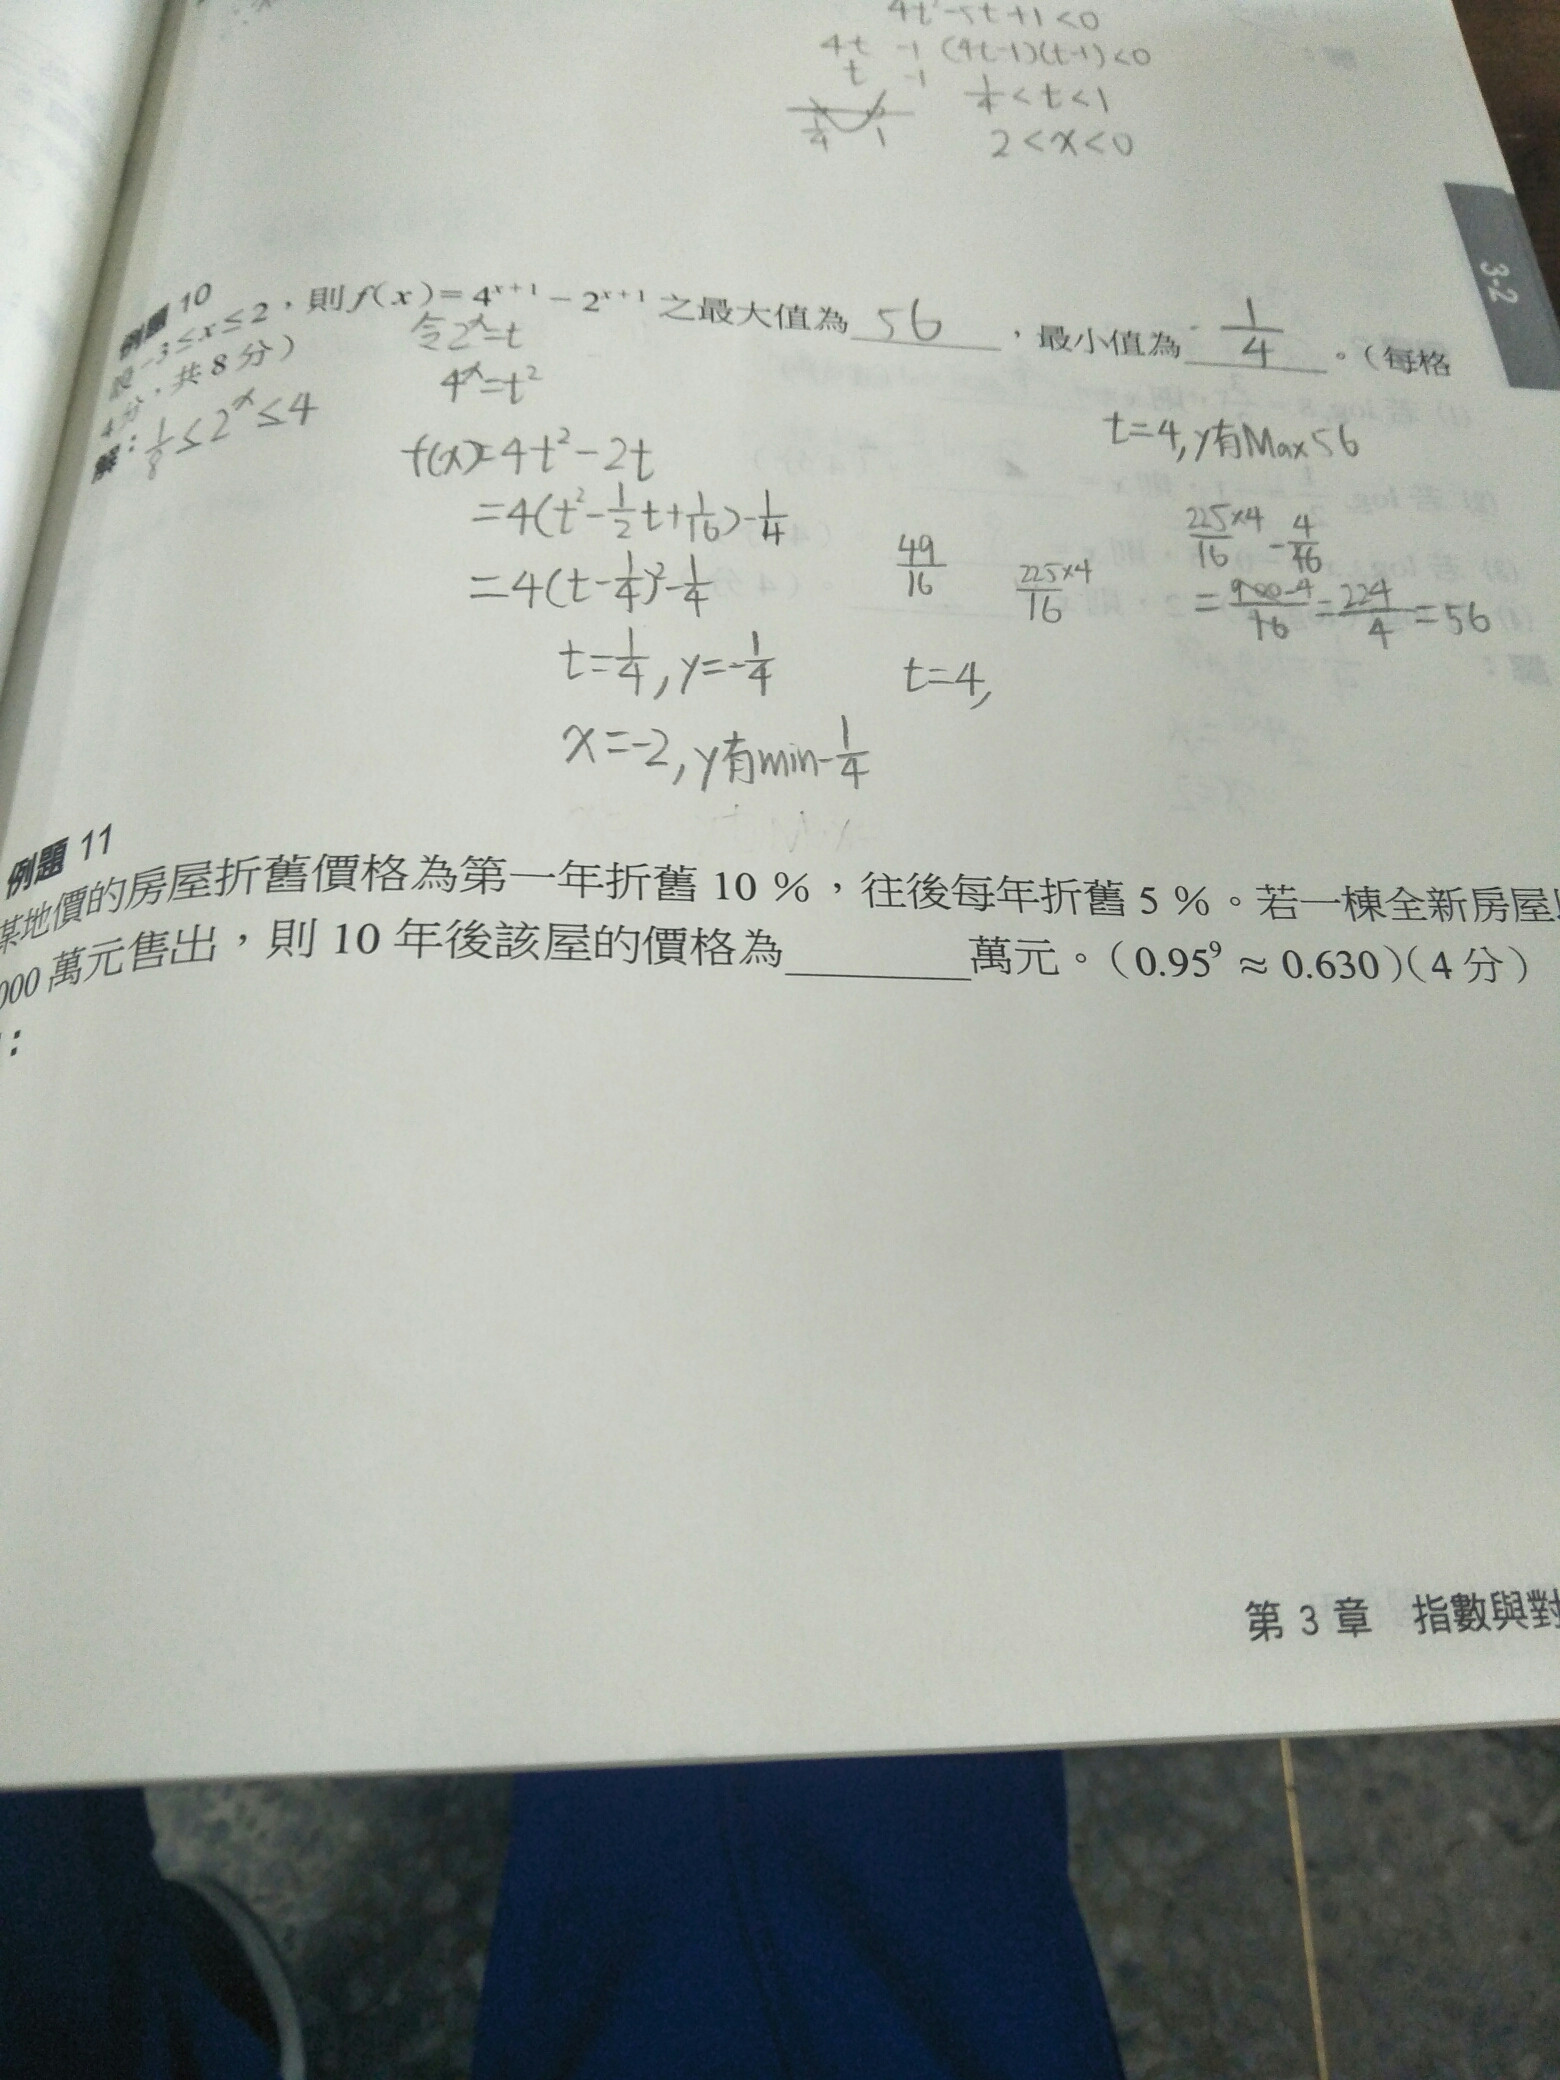 4t²-5t+1<0
4t -1 (4t-1)(t-1)<0
t -1
1/4<t<1
1/4 1
2<x<0
3-2
例題 10
-3≤x≤2，則f(x)=4ˣ⁺¹-2ˣ⁺¹之最大值為 56 ，最小值為 -1/4 。（每格
4分，共8分）
解：1/8≤2ˣ≤4
令2ˣ=t
4ˣ=t²
f(x)=4t²-2t
=4(t²-1/2t+1/16)-1/4
=4(t-1/4)²-1/4
t=1/4, y=-1/4
x=-2, y有min-1/4
49/16
225×4/16
t=4,
t=4, y有Max56
225×4/16-4/16
=900-4/16=224/4=56
例題 11
某地價的房屋折舊價格為第一年折舊 10 %，往後每年折舊 5 %。若一棟全新房屋
000 萬元售出，則 10 年後該屋的價格為 萬元。（0.95⁹ ≈ 0.630）（4 分）
：
第 3 章 指數與對